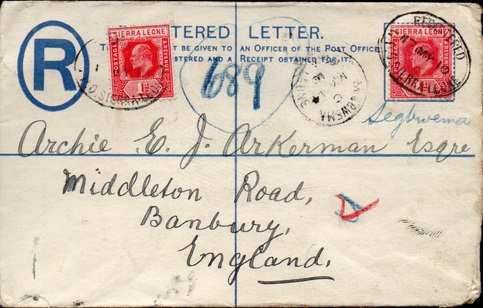 R
REGISTERED LETTER.
THIS LETTER MUST BE GIVEN TO AN OFFICER OF THE POST OFFICE
TO BE REGISTERED AND A RECEIPT OBTAINED FOR IT.
SIERRA LEONE
POSTAGE
1D
689
SEGBWEMA
REGISTERED
SIERRA LEONE
Segbwema
Archie E. J. Arkerman Esqre
Middleton Road,
Banbury,
England.